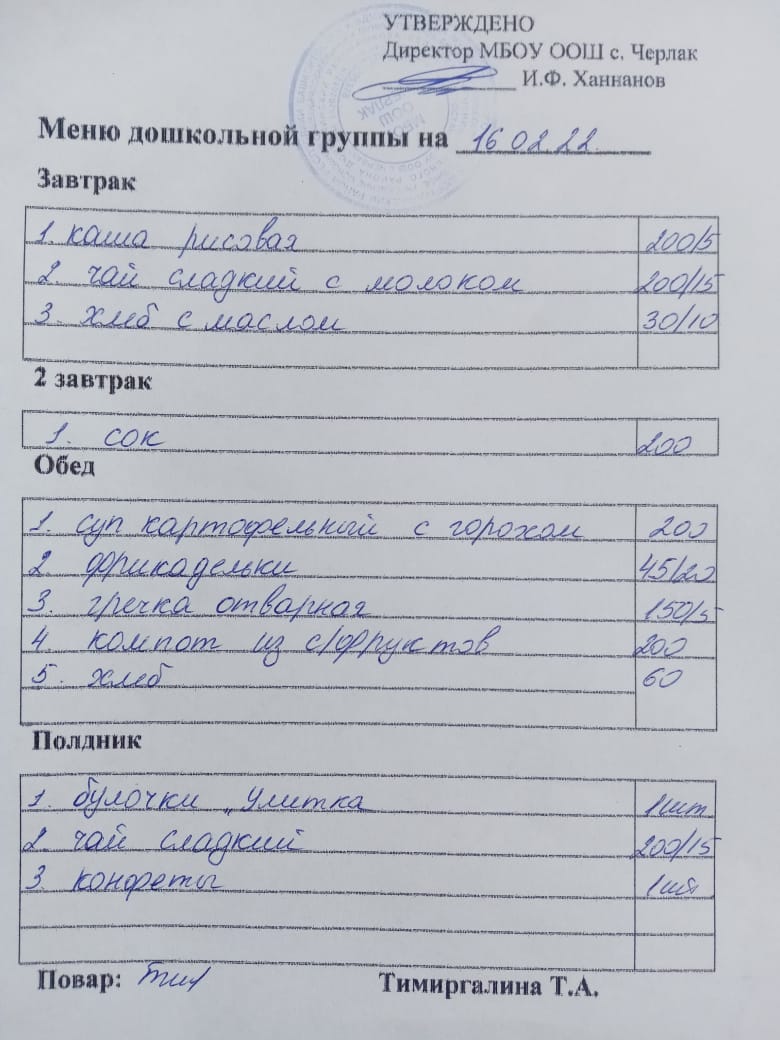 УТВЕРЖДЕНО
Директор МБОУ ООШ с. Черлак
И.Ф. Ханнанов
Меню дошкольной группы на 16.02.22.
Завтрак
1. каша рисовая 200/5
2. чай сладкий с молоком 200/15
3. хлеб с маслом 30/10
2 завтрак
1. сок 200
Обед
1. суп картофельный с горохом 200
2. фрикадельки 45/20
3. гречка отварная 150/5
4. компот из с/фруктов 200
5. хлеб 60
Полдник
1. булочки „Улитка 1шт.
2. чай сладкий 200/15
3. конфеты 1шт
Повар: Тимиргалина Т.А.